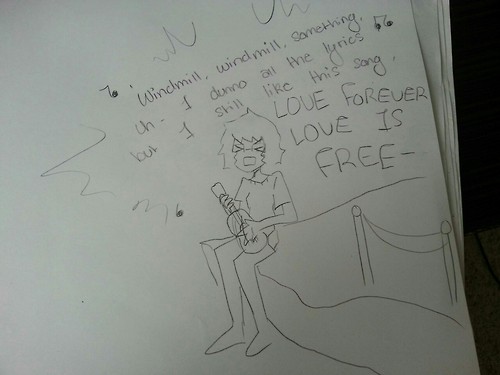 Windmill, windmill, something,
uh - I dunno all the lyrics
but I still like this song.
LOVE FOREVER
LOVE IS
FREE-